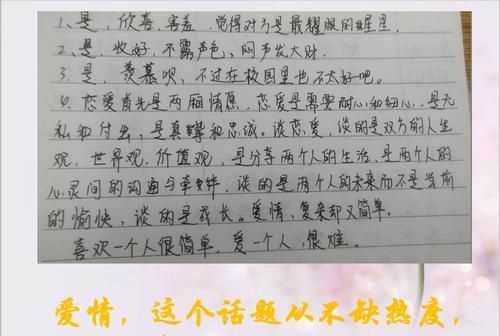 1、是，欣喜，害羞，觉得对方是最耀眼的星星
2、是，收好，不露声色、闷声发大财.
3、是，羡慕呗，不过在校园里也不太好吧。
4、恋爱首先是两厢情愿，恋爱是需要耐心和细心、是无
私和付出，是真挚和忠诚。谈恋爱，谈的是双方的人生
观，世界观，价值观，是分享两个人的生活，是两个人的
心灵间的沟通与牵绊，谈的是两个人的未来而不是当前
的愉快，谈的是成长。爱情，复杂却又简单，
喜欢一个人很简单，爱一个人，很难。
爱情，这个话题从不缺热度，